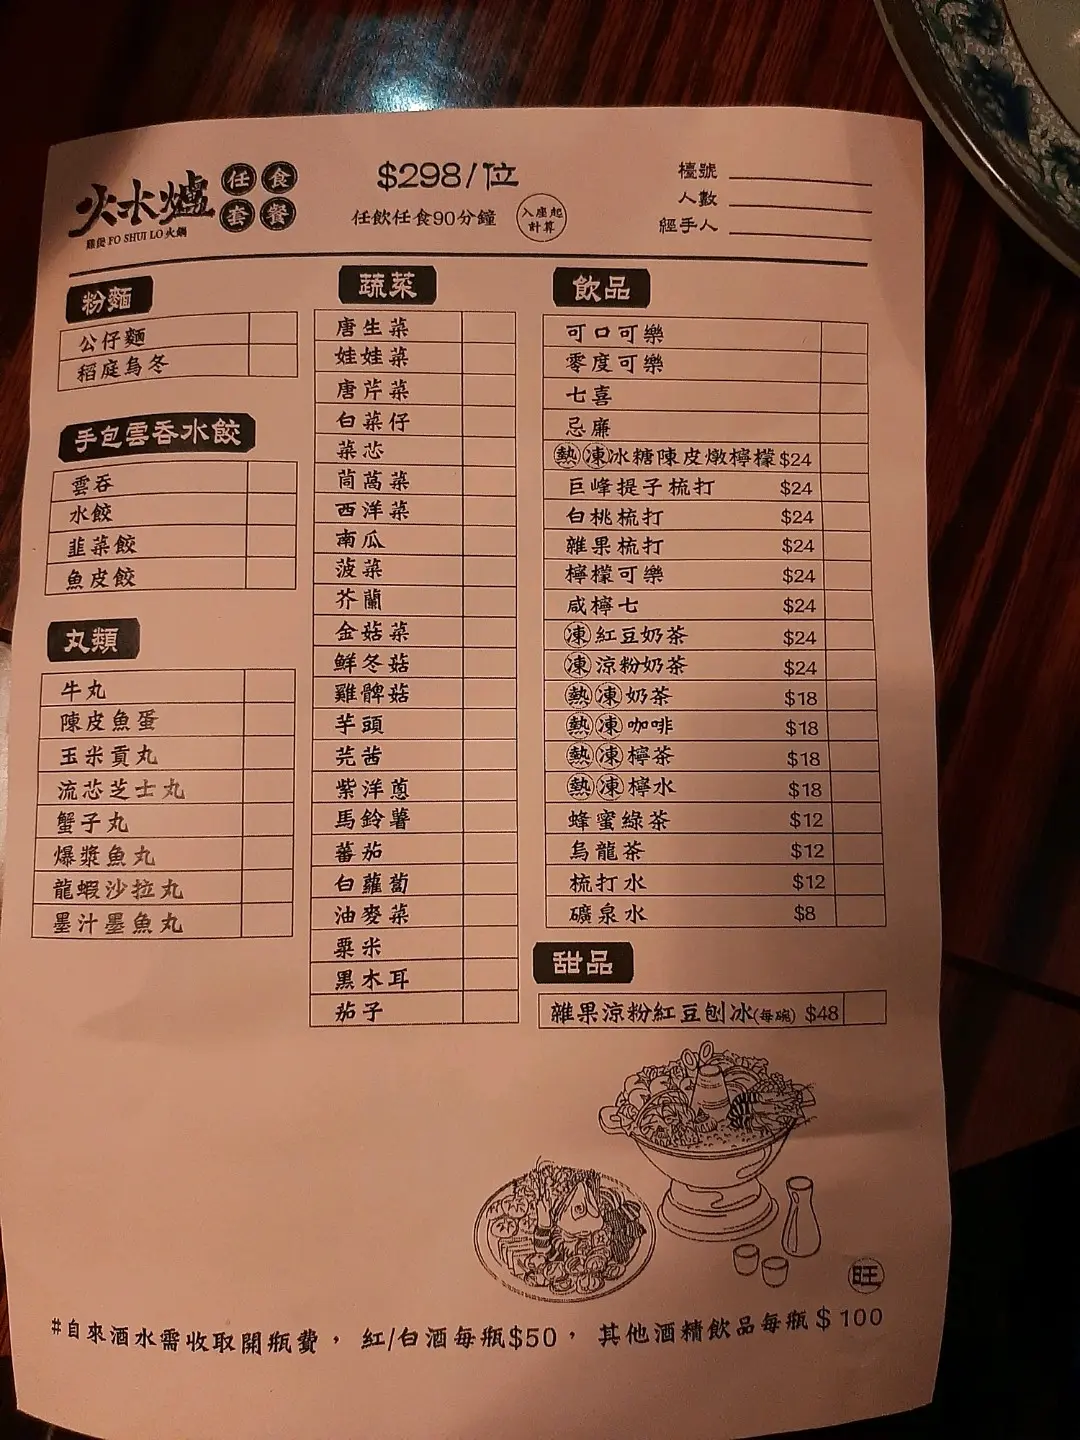 火水爐
雞煲 FO SHUI LO 火鍋
任食
套餐
$298/位
任飲任食90分鐘
入座起
計算
檯號
人數
經手人
粉麵
公仔麵
稻庭烏冬
手包雲吞水餃
雲吞
水餃
韮菜餃
魚皮餃
丸類
牛丸
陳皮魚蛋
玉米貢丸
流芯芝士丸
蟹子丸
爆漿魚丸
龍蝦沙拉丸
墨汁墨魚丸
蔬菜
唐生菜
娃娃菜
唐芹菜
白菜仔
菜芯
茼萵菜
西洋菜
南瓜
菠菜
芥蘭
金菇菜
鮮冬菇
雞髀菇
芋頭
芫茜
紫洋蔥
馬鈴薯
蕃茄
白蘿蔔
油麥菜
粟米
黑木耳
茄子
飲品
可口可樂
零度可樂
七喜
忌廉
熱 凍 冰糖陳皮燉檸檬 $24
巨峰提子梳打 $24
白桃梳打 $24
雜果梳打 $24
檸檬可樂 $24
咸檸七 $24
凍 紅豆奶茶 $24
凍 涼粉奶茶 $24
熱 凍 奶茶 $18
熱 凍 咖啡 $18
熱 凍 檸茶 $18
熱 凍 檸水 $18
蜂蜜綠茶 $12
烏龍茶 $12
梳打水 $12
礦泉水 $8
甜品
雜果涼粉紅豆刨冰(每碗) $48
旺
#自來酒水需收取開瓶費， 紅/白酒每瓶$50， 其他酒精飲品每瓶$100